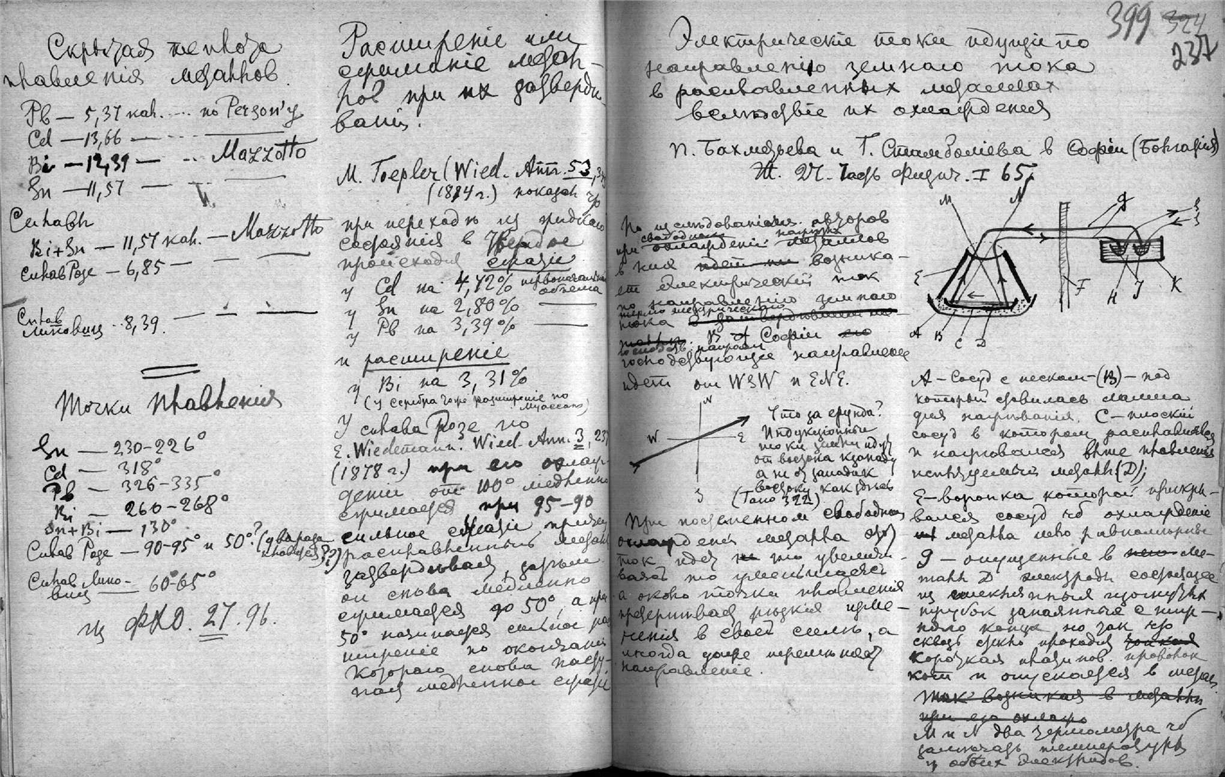 Скрытая теплота
плавления металлов.
Pb — 5,37 кал. ... по Person'у
Cd — 13,66 —
Bi — 12,39 — .. Mazzotto
Sn — 11,57 —
Сплавы
Bi+Sn — 11,57 кал. — Mazzotto
Сплав Розе — 6,85
Сплав
Липовиц .. 8,39.
Точки плавления
Sn — 230-226°
Cd — 318°
Pb — 326-335°
Bi — 260-268°
Sn+Bi — 130°
Сплав Розе — 90-95° и 50°? (два раза плавится??)
Сплав Липо-
виц — 60-65°
из ФХО. 27. 96.
Расширенiе или
сжиманiе метал-
лов при их затверде-
ванiи.
M. Toepler (Wied. Ann. 53,
(1884 г.) показал что
при переходе из жидкого
состоянiя в твердое
происходит сжатiе
у Cd на 4,72% первоначального объема
у Sn на 2,80% —
у Pb на 3,39% —
и расширенiе
у Bi на 3,31%
(у серебра тоже расширенiе по
У сплава Розе по
E. Wiedemann. Wied. Ann. 3,
(1878 г.) при его охлаж-
денiи от 100° медленно
сжимается при 95-90
сильное сжатiе причем
расплавленный металл
затвердевая, затем
он снова медленно
сжимается до 50°, а при
50° начинается сильное рас-
ширенiе по окончанiи
которого снова насту-
пает медленное сжатiе
399 324
237
Электрическiе токи идущiе по
направленiю земного тока
в расплавленных металлах
вследствiе их охлажденiя
П. Бахметьева и Г. Стамболiева в Софiи (Болгарiя)
Ж. 27. Часть физич. I 65.
По изследованiям авторов
при свободном охлажденiи нагретых металлов
в них возника-
ет электрическiй ток
по направленiю земного
термоэлектрического
тока
В Софiи
господствующее направленiе
идет от WSW к ENE.
N
W E
S
Что за ерунда?
Индукцiонные
токи земли идут
от востока к западу
а не от запада к
востоку как здесь
(Тоже 322)
При постепенном свободном
охлажденiи металла этот
ток идет то увеличи-
ваясь то уменьшаясь
а около точки плавленiя
претерпивает резкiя изме-
ненiя в своей силе, а
иногда даже переменяет
направленiе.
M N g
E F H J K
A B C D
A — Сосуд с песком — (B) — под
который ставилась лампа
для нагреванiя. C — плоскiй
сосуд в котором расплавлялся
и нагревался выше плавленiя
испытуемый металл (D);
E — воронка которой прикры-
вался сосуд чтоб охлажденiе
металла шло равномернее
g — опущенные в ме-
талл D электроды состоящiе
из стеклянных
трубок запаянные с ниж-
няго конца но так что
сквозь стекло проходит
короткая платинов. проволо-
ка и опускается в металл.
так возникая в металле
при его охлажд
M и N два термометра чтоб
замечать температуру
у обоих электродов.